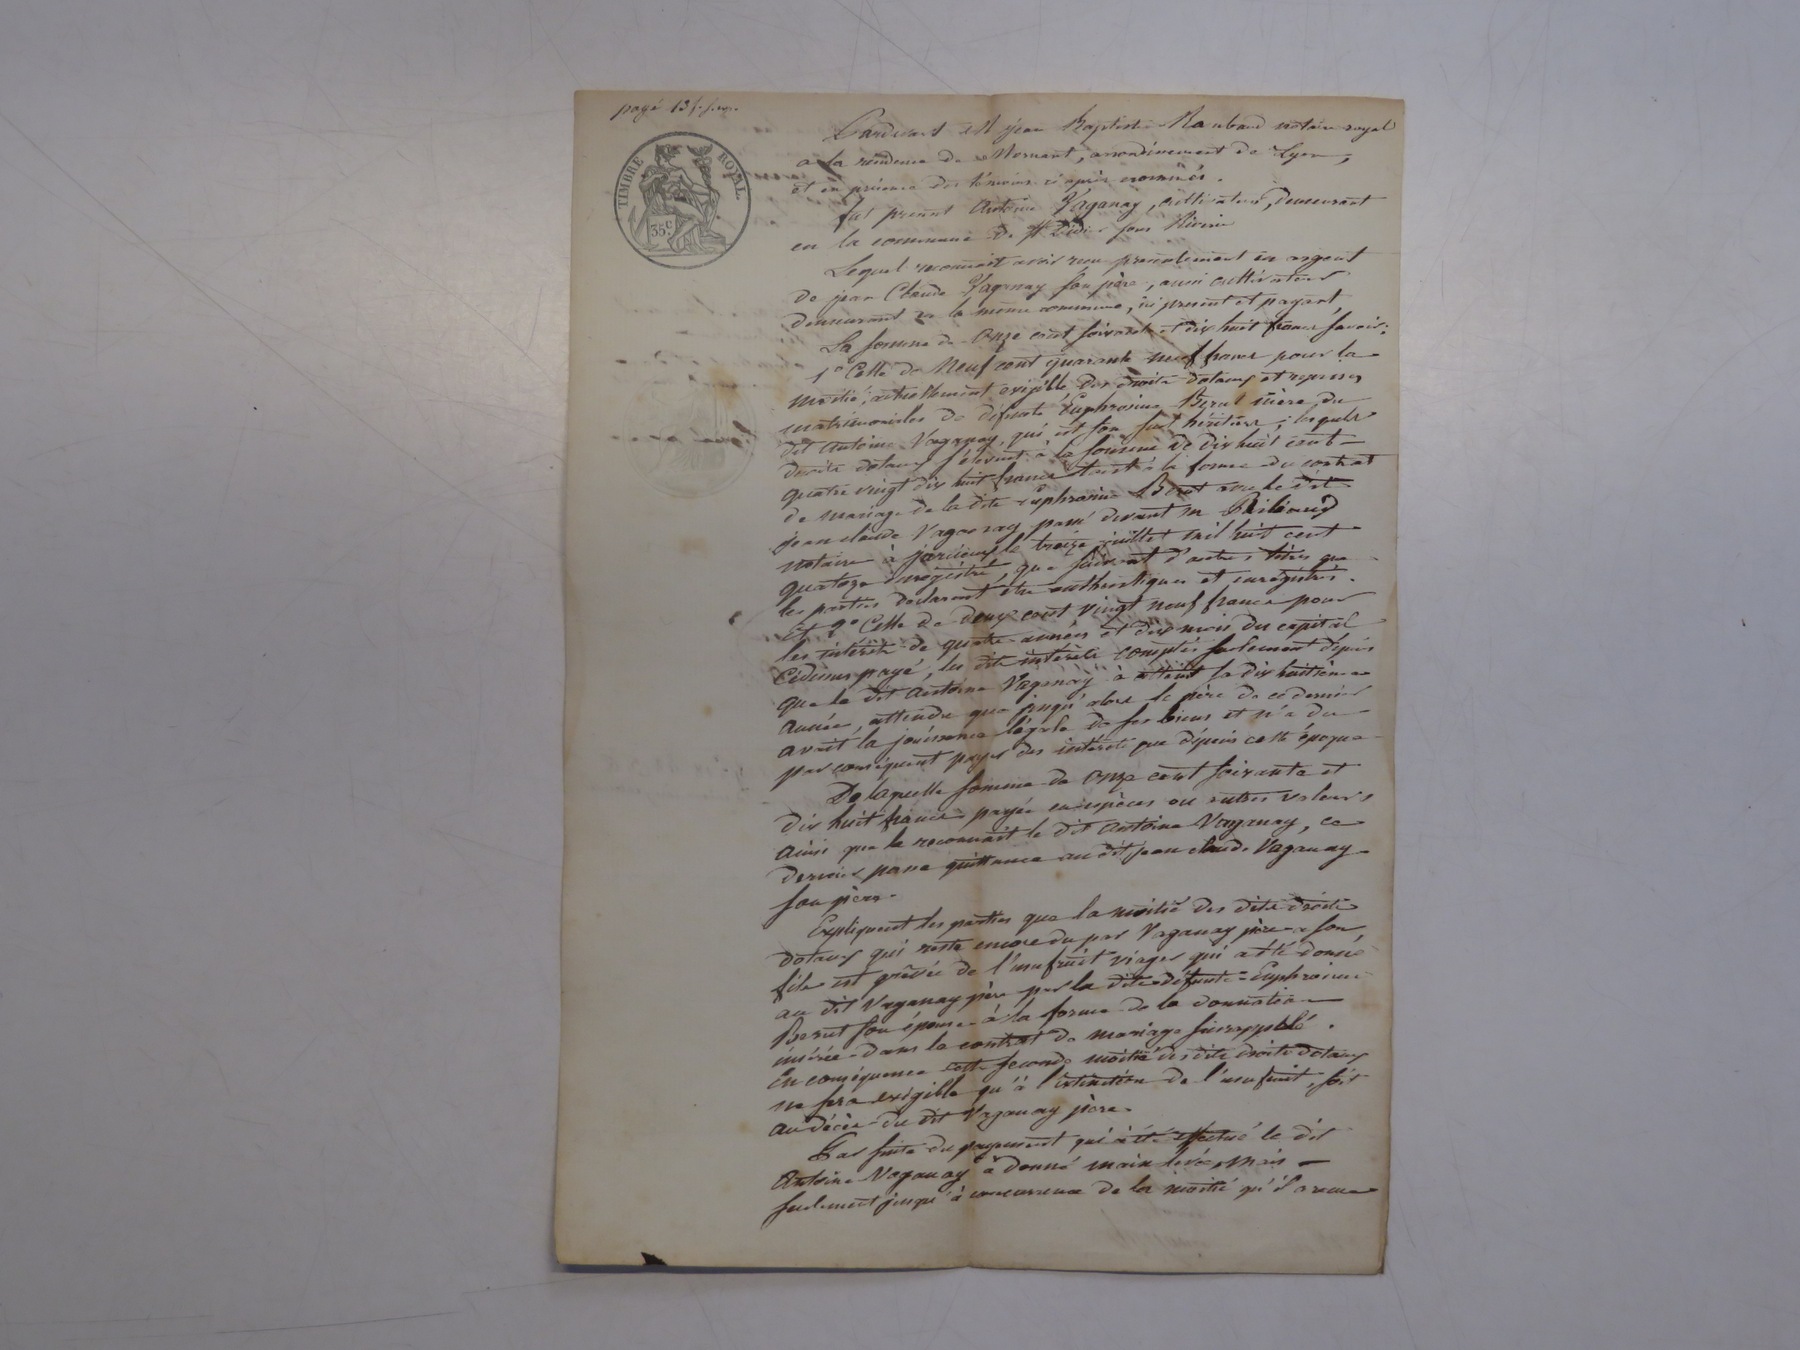 payé 13 f.
TIMBRE ROYAL
35 c.
Pardevant Me jean Baptiste notaire royal
a la residence de Mornant, arrondissement de Lyon,
et en présence des témoins ci après nommés.
fut present Antoine Vaganay, cultivateur, demeurant
en la commune de St Didier sous Riverie
Lequel reconnait avoir recu presentement en argent
de jean Claude Vaganay son père, aussi cultivateur
demeurant en la même commune, ici present et payant,
La somme de Onze cent soixante et dix huit francs savoir:
1° Celle de Neuf cent quarante neuf francs pour la
moitié, actuellement exigible des droits dotaux et reprises
matrimoniales de défunte Euphrosine mère du
dit Antoine Vaganay, qui est son seul héritier; lesquels
droits dotaux s'élevent à la somme de dix huit cent
quatre vingt dix huit francs tant à la forme du contrat
de mariage de la dite Euphrosine avec le dit
jean claude Vaganay passé devant me
notaire à le treize juillet mil huit cent
quatorze enregistré, que suivant d'autres titres que
les parties declarent être authentiques et enregistrés.
Et 2° Celle de deux cent vingt neuf francs pour
les intérêts de quatre années et dix mois du capital
cidessus payé, les dits intérêts comptés seulement dépuis
que le dit Antoine Vaganay à atteint sa dix huitième
année, attendu que jusqu'alors le père de ce dernier
avait la jouissance légale de ses biens et n'a du
par conséquent payer des intérêts que dépuis cette époque
De laquelle somme de onze cent soixante et
dix huit francs payée en espèces ou autres valeurs
ainsi que le reconnait le dit Antoine Vaganay, ce
dernier passe quittance au dit jean claude Vaganay
son père.
Expliquent les parties que la moitié des dits droits
dotaux qui reste encore du par Vaganay père a son
fils est grêvée de l'usufruit viager qui a été donné
au dit Vaganay père par la dite défunte Euphrosine
son épouse à la forme de la donnation
insérée dans le contrat de mariage susrappellé.
En conséquence cette seconde moitié des dits droits dotaux
ne sera exigible qu'à l'extinction de l'usufruit, soit
au décès du dit Vaganay père.
Par suite du payement qui à été effectué le dit
Antoine Vaganay à donné main levée, mais
seulement jusqu'à concurrence de la moitié qu'il a reçue